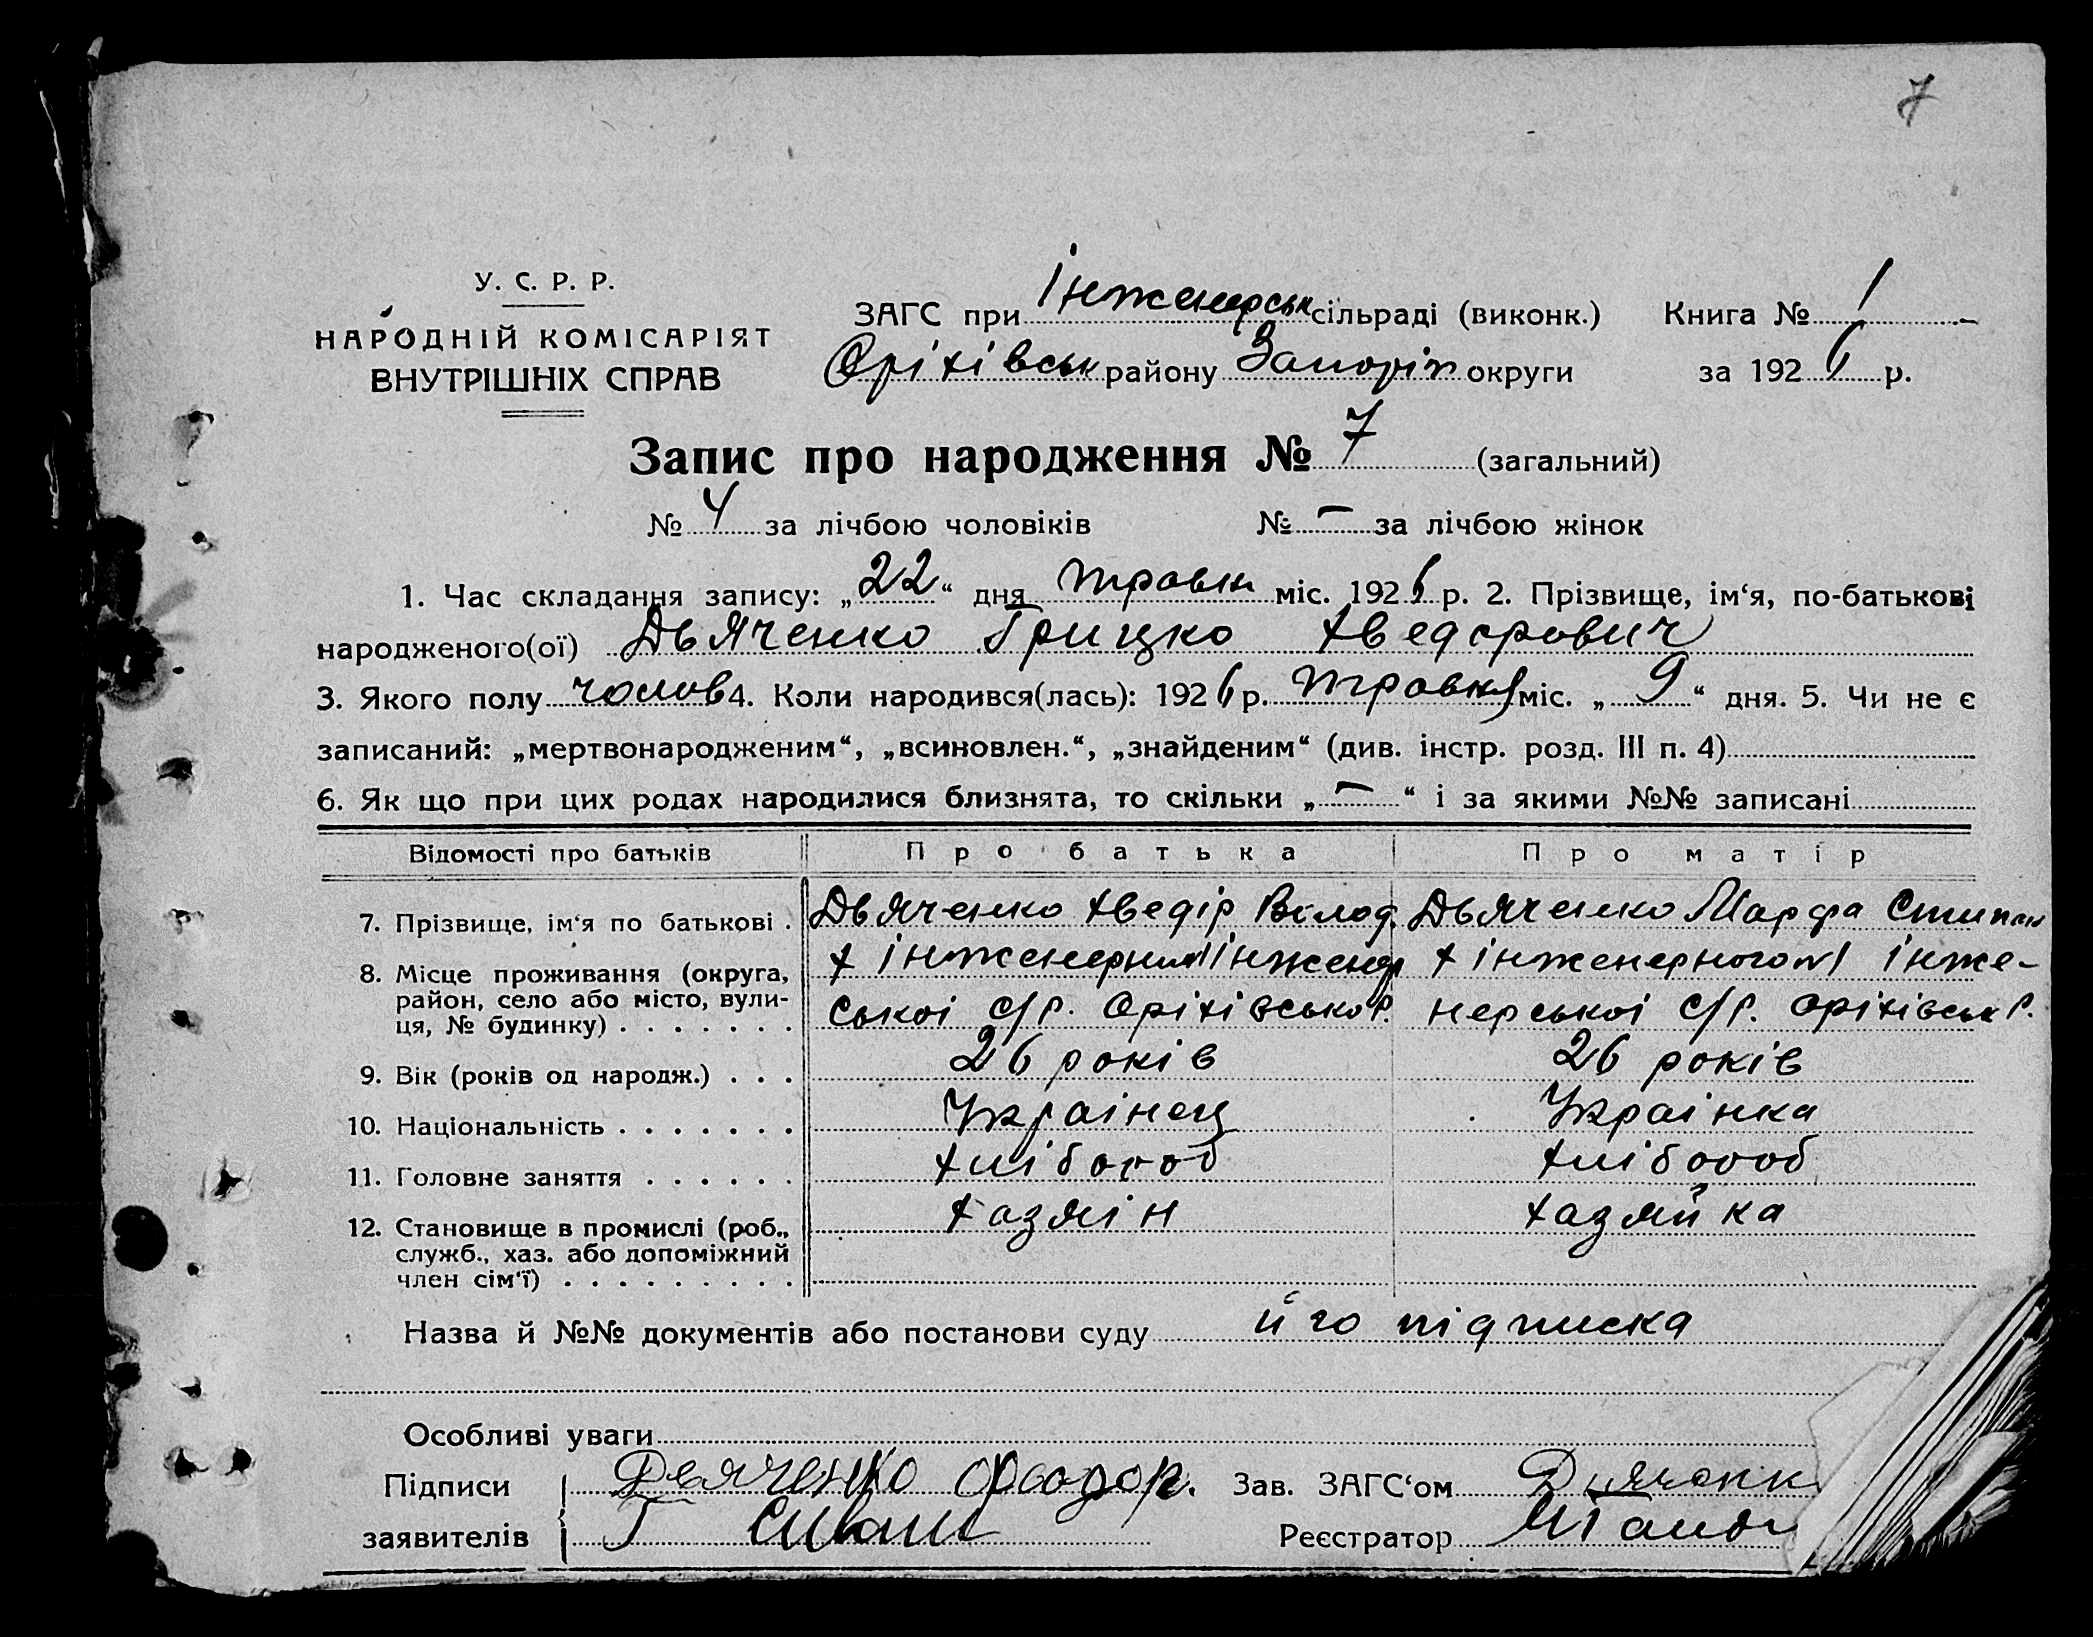 7
У. С. Р. Р.
НАРОДНІЙ КОМІСАРІЯТ
ВНУТРІШНІХ СПРАВ
ЗАГС при Інженерськ сільраді (виконк.) Книга № 1
Оріхівськ району Запоріж округи за 1926 р.
Запис про народження № 7 (загальний)
№ 4 за лічбою чоловіків № — за лічбою жінок
1. Час складання запису: „22“ дня травня міс. 1926 р. 2. Прізвище, ім‘я, по-батькові
народженого(ої) Дьяченко Грицко Хведорович
3. Якого полу чолов 4. Коли народився(лась): 1926 р. травня міс. „9“ дня. 5. Чи не є
записаний: „мертвонародженим“, „всиновлен.“, „знайденим“ (див. інстр. розд. III п. 4)
6. Як що при цих родах народилися близнята, то скільки „—“ і за якими №№ записані
Відомості про батьків Про батька Про матір
7. Прізвище, ім‘я по батькові . Дьяченко Хведір Волод. Дьяченко Марфа Стипан
8. Місце проживання (округа, район, село або місто, вулиця, № будинку) . . . . . . .
х Інженерний Інженер х Інженерного Інже-
ської С/р. Оріхівської Р. нерської С/р. Оріхівськ Р.
9. Вік (років од народж.) . . . 26 років 26 років
10. Національність . . . . . . . Українец Українка
11. Головне заняття . . . . . . хлібороб хлібороб
12. Становище в промислі (роб., служб., хаз. або допоміжний член сім‘ї) . . . . . . . . .
хазяін хазяйка
Назва й №№ документів або постанови суду його підписка
Особливі уваги
Підписи Дьяченко Феодор. Зав. ЗАГС‘ом
заявителів Реєстратор